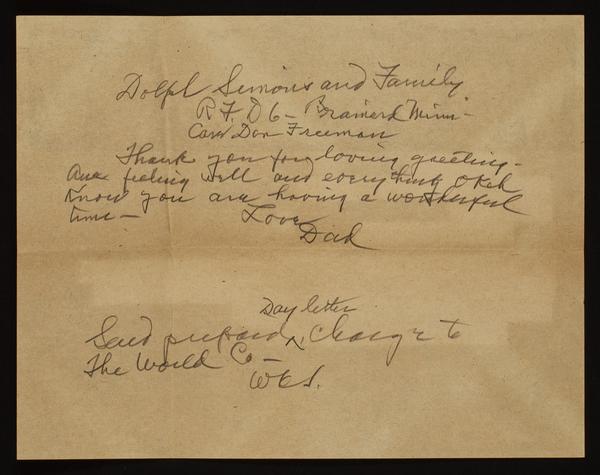 Dolph Simons and Family
R.F.D 6 - Brainerd Minn -
Care Don Freeman
Thank you for loving greeting -
Am feeling well and everything Okeh
Know you are having a wonderful
time - Love
Dad
Day letter
Send prepaid ^, Charge to
The World Co -
WCS.